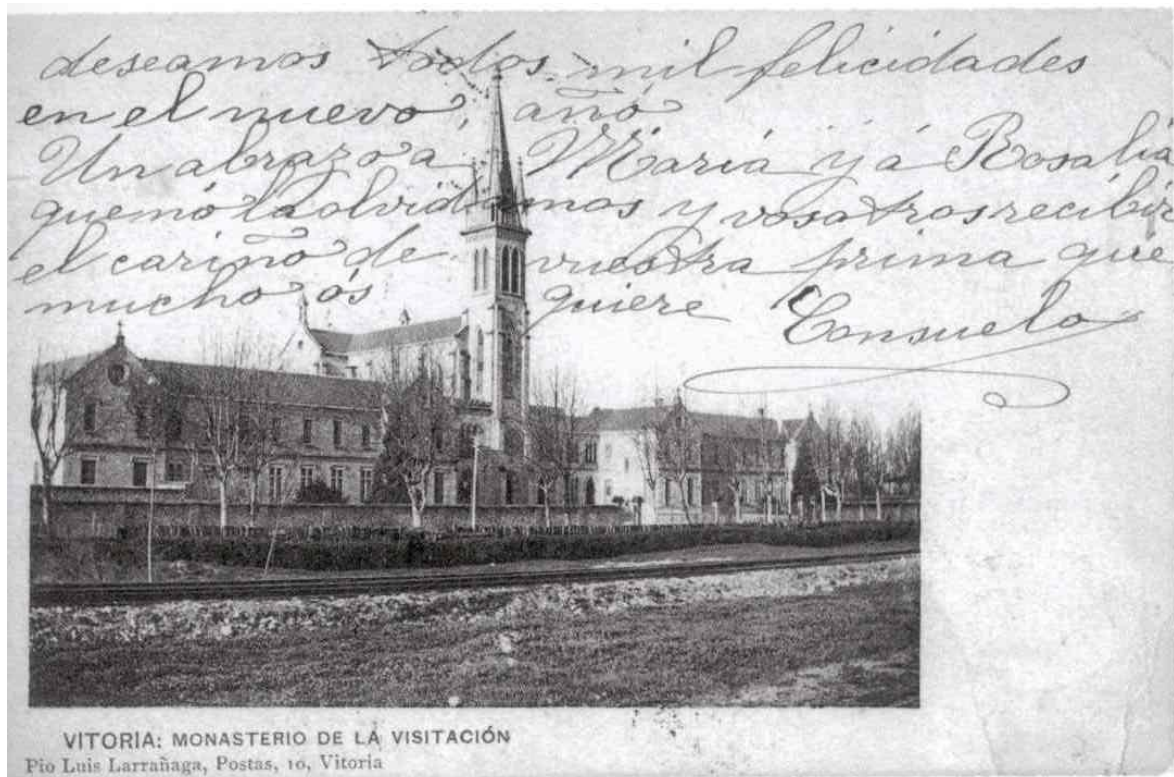 deseamos todos mil felicidades
en el nuevo, año
Un abrazo a María y á Rosalía
que nó la olvidamos y vosotros recibir
el cariño de vuestra prima que
mucho ós quiere Consuelo
VITORIA: MONASTERIO DE LA VISITACIÓN
Pio Luis Larrañaga, Postas, 10, Vitoria